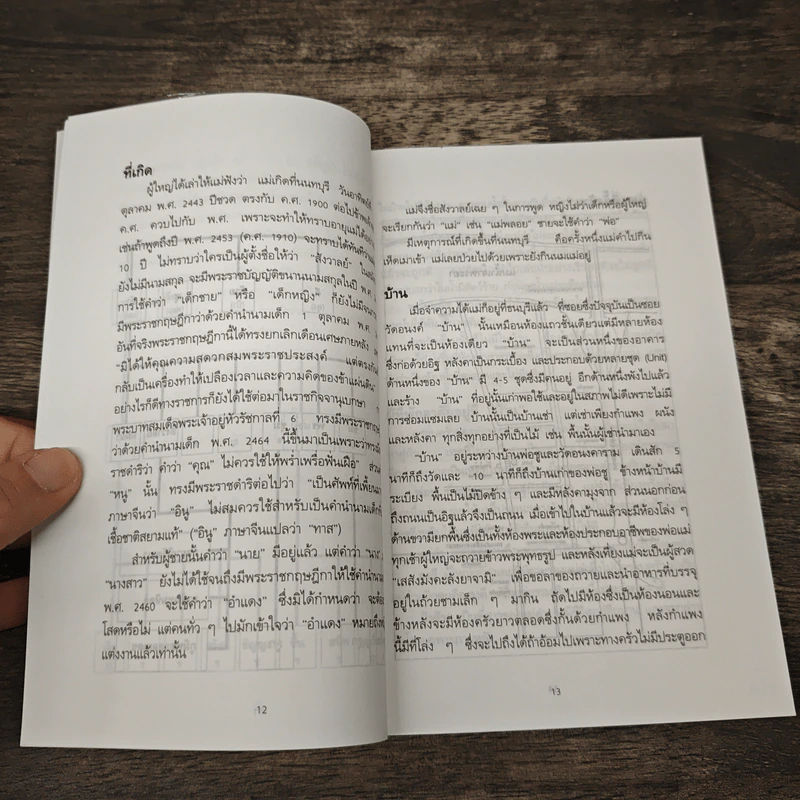 ที่เกิด
ผู้ใหญ่ได้เล่าให้แม่ฟังว่า แม่เกิดที่นนทบุรี วันอาทิตย์ที่
ตุลาคม พ.ศ. 2443 ปีชวด ตรงกับ ค.ศ. 1900 ต่อไปข้าพเจ้า
ค.ศ. ควบไปกับ พ.ศ. เพราะจะทำให้ทราบอายุแม่ได้
เช่นถ้าพูดถึงปี พ.ศ. 2453 (ค.ศ. 1910) จะทราบได้ทันทีว่า
10 ปี ไม่ทราบว่าใครเป็นผู้ตั้งชื่อให้ว่า “สังวาลย์”
ยังไม่มีนามสกุล จะมีพระราชบัญญัติขนานนามสกุลในปี พ.ศ.
การใช้คำว่า “เด็กชาย” หรือ “เด็กหญิง” ก็ยังไม่มี
มีพระราชกฤษฎีกาว่าด้วยคำนำนามเด็ก 1 ตุลาคม พ.ศ.
อันที่จริงพระราชกฤษฎีกานี้ได้ทรงยกเลิกเดือนเศษภายหลัง
“มิได้ให้คุณความสดวกสมพระราชประสงค์ แต่ตรงกัน
กลับเป็นเครื่องทำให้เปลืองเวลาและความคิดของข้าแผ่นดิน”
อย่างไรก็ดีทางราชการก็ยังได้ใช้ต่อมาในรัชกาล
พระบาทสมเด็จพระเจ้าอยู่หัวรัชกาลที่ 6 ทรงมีพระราชกฤษฎีกา
ว่าด้วยคำนำนามเด็ก พ.ศ. 2464 นี้ขึ้นมาเป็นเพราะว่าทรงมี
ราชดำริว่า คำว่า “คุณ” ไม่ควรใช้ให้พร่ำเพรื่อฟั่นเฝือ” ส่วน
“หนู” นั้น ทรงมีพระราชดำริต่อไปว่า “เป็นศัพท์ที่เพี้ยน
ภาษาจีนว่า “อีนู” ไม่สมควรใช้สำหรับเป็นคำนำนามเด็ก
เชื้อชาติสยามแท้” (“อีนู” ภาษาจีนแปลว่า “ทาส”)
สำหรับผู้ชายนั้นคำว่า “นาย” มีอยู่แล้ว แต่คำว่า
“นางสาว” ยังไม่ได้ใช้จนถึงมีพระราชกฤษฎีกาให้ใช้คำนำนาม
พ.ศ. 2460 จะใช้คำว่า “อำแดง” ซึ่งมิได้กำหนดว่า จะต้อง
โสดหรือไม่ แต่คนทั่ว ๆ ไปมักเข้าใจว่า “อำแดง” หมายถึง
แต่งงานแล้วเท่านั้น
12
แม่จึงชื่อสังวาลย์เฉย ๆ ในการพูด หญิงไม่ว่าเด็กหรือผู้ใหญ่
จะเรียกกันว่า “แม่” เช่น “แม่พลอย” ชายจะใช้คำว่า “พ่อ”
มีเหตุการณ์ที่เกิดขึ้นที่นนทบุรี คือครั้งหนึ่งแม่คำไปกิน
เห็ดเมาเข้า แม่เลยป่วยไปด้วยเพราะยังกินนมแม่อยู่
บ้าน
เมื่อจำความได้แม่ก็อยู่ที่ธนบุรีแล้ว ที่ซอยซึ่งปัจจุบันเป็นซอย
วัดอนงค์ “บ้าน” นั้นเหมือนห้องแถวชั้นเดียวแต่มีหลายห้อง
แทนที่จะเป็นห้องเดียว “บ้าน” จะเป็นส่วนหนึ่งของอาคาร
ซึ่งก่อด้วยอิฐ หลังคาเป็นกระเบื้อง และประกอบด้วยหลายชุด (Unit)
ด้านหนึ่งของ “บ้าน” มี 4-5 ชุดซึ่งมีคนอยู่ อีกด้านหนึ่งพังไปแล้ว
และร้าง “บ้าน” ที่อยู่นั้นเก่าพอใช้และอยู่ในสภาพไม่ดีเพราะไม่มี
การซ่อมแซมเลย บ้านนั้นเป็นบ้านเช่า แต่เช่าเพียงกำแพง ผนัง
และหลังคา ทุกสิ่งทุกอย่างที่เป็นไม้ เช่น พื้นนั้นผู้เช่านำมาเอง
“บ้าน” อยู่ระหว่างบ้านพ่อชูและวัดอนงคาราม เดินสัก 5
นาทีก็ถึงวัดและ 10 นาทีก็ถึงบ้านเก่าของพ่อชู ข้างหน้าบ้านมี
ระเบียง พื้นเป็นไม้ปิดข้าง ๆ และมีหลังคามุงจาก ส่วนนอกก่อน
ถึงถนนเป็นอิฐแล้วจึงเป็นถนน เมื่อเข้าไปในบ้านแล้วจะมีห้องโล่ง ๆ
ด้านขวามียกพื้นซึ่งเป็นทั้งห้องพระและห้องประกอบอาชีพของพ่อแม่
ทุกเช้าผู้ใหญ่จะถวายข้าวพระพุทธรูป และหลังเที่ยงแม่จะเป็นผู้สวด
“เสสังมังคะลังยาจามิ” เพื่อขอลาของถวายและนำอาหารที่บรรจุ
อยู่ในถ้วยชามเล็ก ๆ มากิน ถัดไปมีห้องซึ่งเป็นห้องนอนและ
ข้างหลังจะมีห้องครัวยาวตลอดซึ่งกั้นด้วยกำแพง หลังกำแพง
นี้มีที่โล่ง ๆ ซึ่งจะไปถึงได้ถ้าอ้อมไปเพราะทางครัวไม่มีประตูออก
13